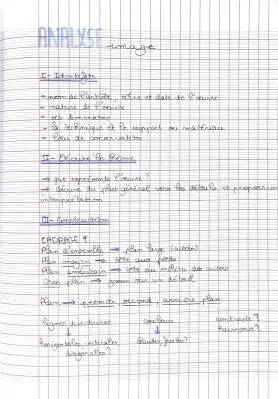 ANALYSE
image
I - Identifier
- nom de l'artiste, titre et date de l'oeuvre
- nature de l'oeuvre
- ses dimensions
- la technique et le support ou matériaux
- lieu de conservation
II - Décrire le thème
→ que représente l'oeuvre ?
→ décrire du plus général vers les détails et proposer une
interprétation
III - Construction
CADRAGE ?
Plan d'ensemble → plan large (action)
Plan moyen → tête aux pieds
Plan américain → tête au milieu des cuisses
Gros plan → sur un détail
Plan → premier, second, arrière plan
lignes directrices couleurs contraste ?
harmonie ?
horizontales, verticales, chaudes, froides ?
diagonales ?